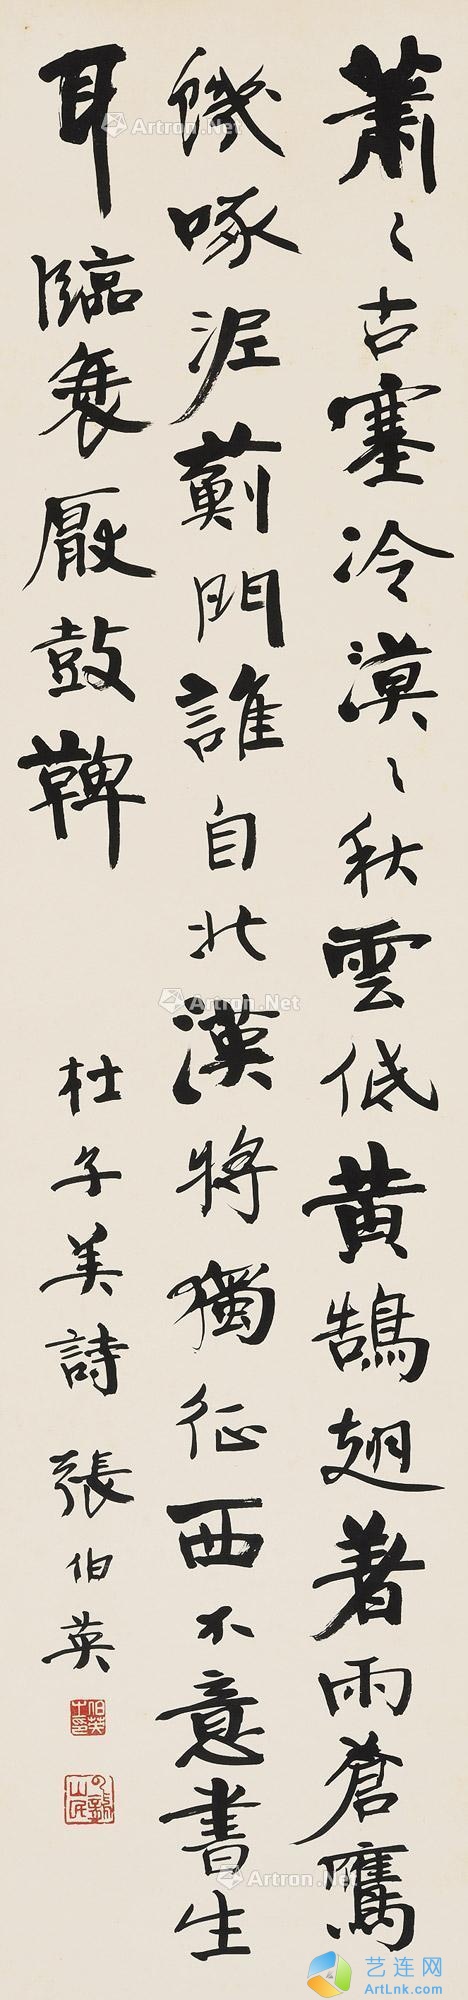 蕭〻古塞冷漠〻秋雲低黄鵠翅著雨蒼鷹
饑啄泥薊門誰自北漢將獨征西不意書生
耳臨衰厭鼓鞞
杜子美詩 張伯英
Artron.Net
Artron.Net
Artron.Net
Artron.Net
Artron.Net
艺连网
ArtLnk.com